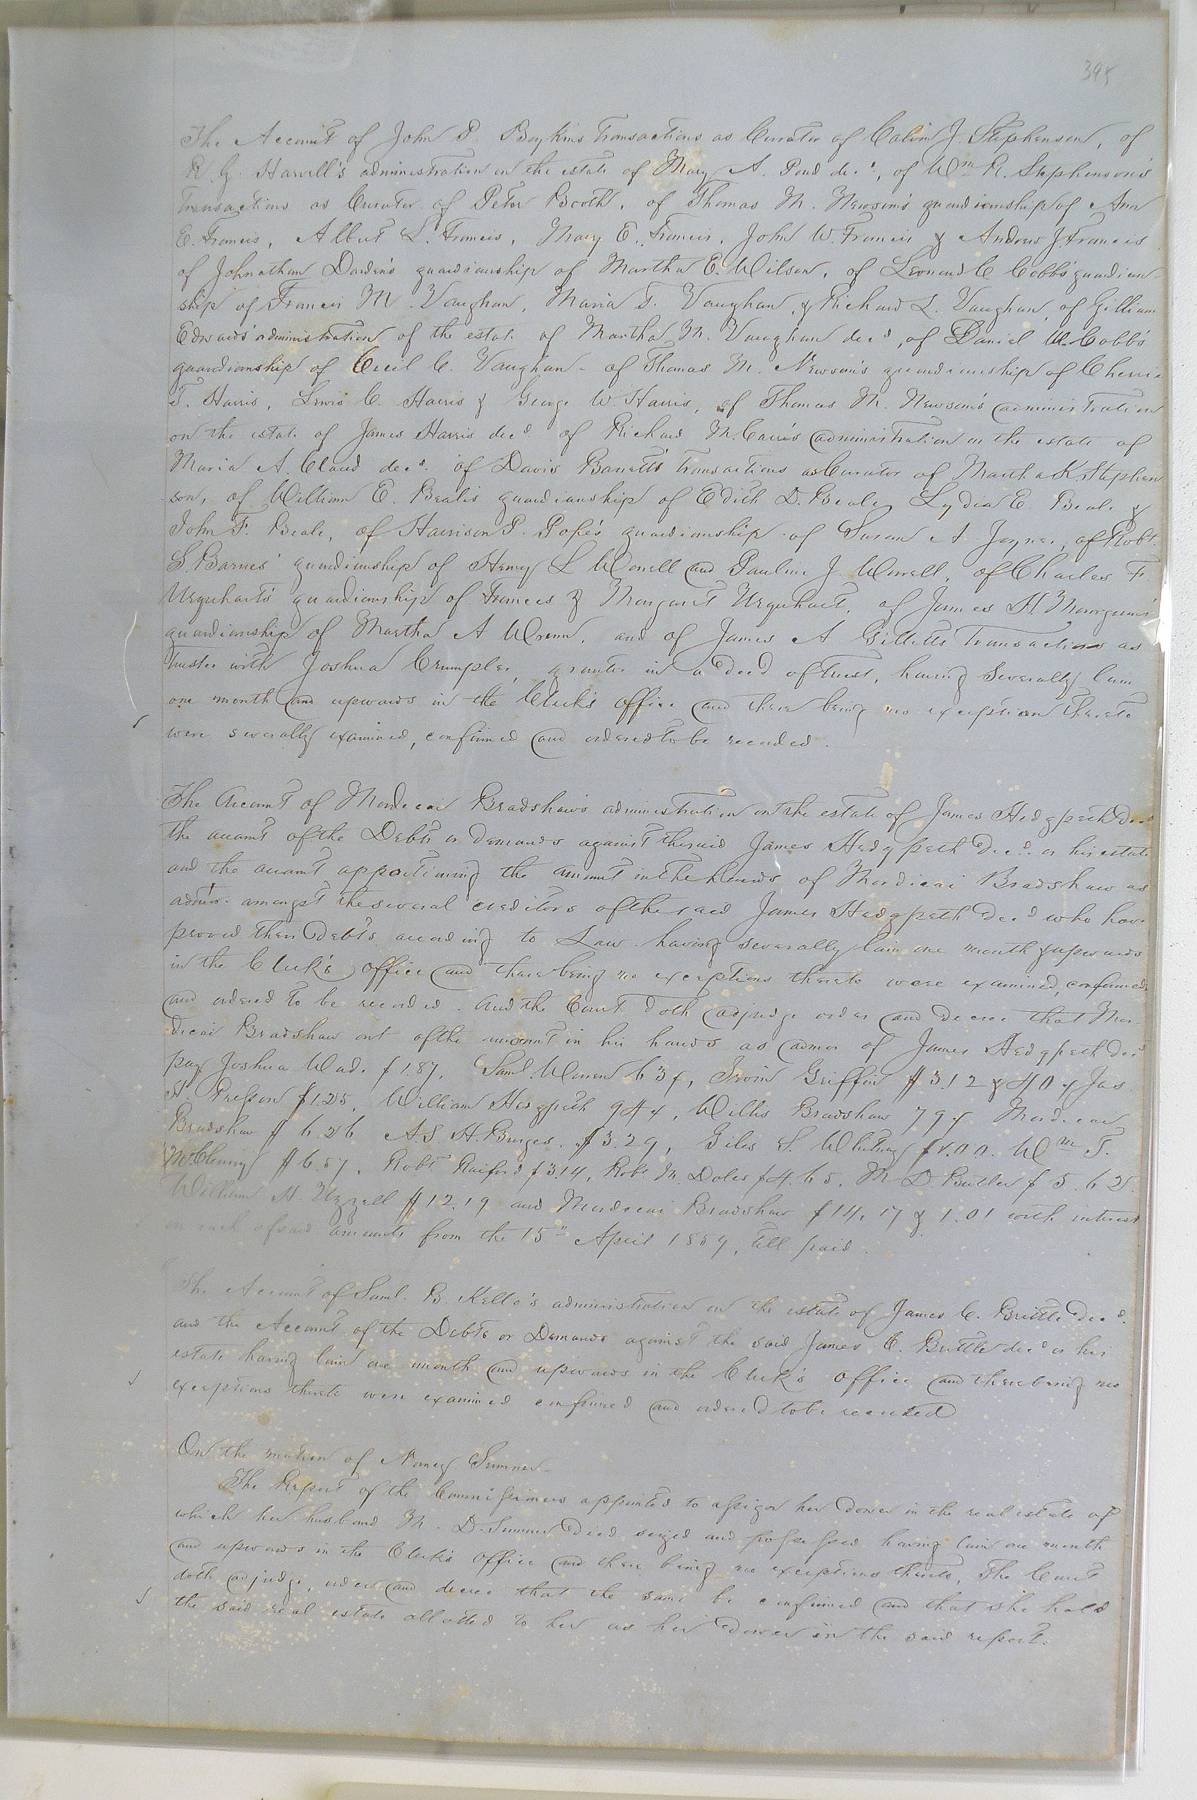 395
The Account of John P. Boykins Transactions as Curator of Calvin J. Stephenson, of
R. G. Harvill's administration on the estate of Mary A. Pond decd, of Wm R. Stephenson's
Transactions as Curator of Peter Booth, of Thomas M. Newsom's guardianship of Ann
E. Francis, Albert L. Francis, Mary E. Francis, John W. Francis & Andrew J Francis
of Johnathan Darden's guardianship of Martha E. Wilson, of Leonard C Cobbs guardian
ship of Francis M. Vaughan, Maria T. Vaughan, & Richard L. Vaughan, of Gilliam
Edwards' administration of the estate of Martha M. Vaughan decd, of Daniel W. Cobb's
guardianship of Cecil C. Vaughan - of Thomas M. Newsom's guardianship of
T. Harris, Lewis C. Harris & George W Harris, of Thomas M. Newsom's administration
on the estate of James Harris decd of Richard M. administration on the estate of
Maria A. Claud decd. of Davis Barrett's Transactions as Curator of Martha K. Stephen
son, of William E. Beale's guardianship of Edith D. Beale, Lydia E Beale &
John F. Beale, of Harrison P. Pope's guardianship of Susan A. Joyner, of Robt
S. Barnes' guardianship of Henry L Worrell and Pauline J. Worrell, of Charles F.
Urquhart's guardianship of Frances & Margaret Urquhart, of James H.
guardianship of Martha A Wrenn, and of James A Gillett's Transactions as
Trustee with Joshua Crumpler, grantor in a deed of trust, having severally lain
one month and upwards in the Clerk's office and there being no exception thereto
were severally examined, confirmed and ordered to be recorded.
The Account of Mordecai Bradshaw's administration on the estate of James Hedgpeth decd
the account of the Debts or demands against the said James Hedgpeth decd or his estate
and the account apportioning the amount in the hands of Mordicai Bradshaw as
admr. amongst the several creditors of the said James Hedgpeth decd who have
proved their Debts according to Law having severally lain one month & upwards
in the Clerk's office and there being no exceptions thereto were examined, confirmed
and ordered to be recorded. And the Court doth adjudge order and decree that Mor-
dicai Bradshaw out of the amount in his hands as admor of James Hedgpeth decd
pay Joshua Wad. $1.87, Saml. Warren 63¢, Irvin Griffin $3.12 & 40¢ Jas.
H. Presson $1.25, William Hedgpeth 94¢, Willis Bradshaw 79¢ Mordecai
Bradshaw $6.26 A. S. H. Burges. $3.29, Giles S. Whitney $1.00. Wm T.
McClenny $6.57, Robt Raiford $3.14, Robt M. Doles $4.65. M D Butler $5.62
William H. Uzzell $12.19 and Mordecai Bradshaw $14.17 & 1.01 with interest
on each of said amounts from the 15th April 1859, till paid.
The Account of Saml. B. Kello's administration on the estate of James C. Brittle decd.
and the Account of the Debts or Demands against the said James C. Brittle decd or his
estate having lain one month and upwards in the Clerk's office and there being no
exceptions thereto were examined confirmed and ordered to be recorded
On the motion of Nancy Sumner -
The Report of the Commissioners appointed to assign her dower in the real estate of
which her husband M. D. Sumner died seized and possessed having lain one month
and upwards in the Clerk's office and there being no exceptions thereto, The Court
doth adjudge, order and decree that the same be confirmed and that she hold
the said real estate allotted to her as her dower in the said report.